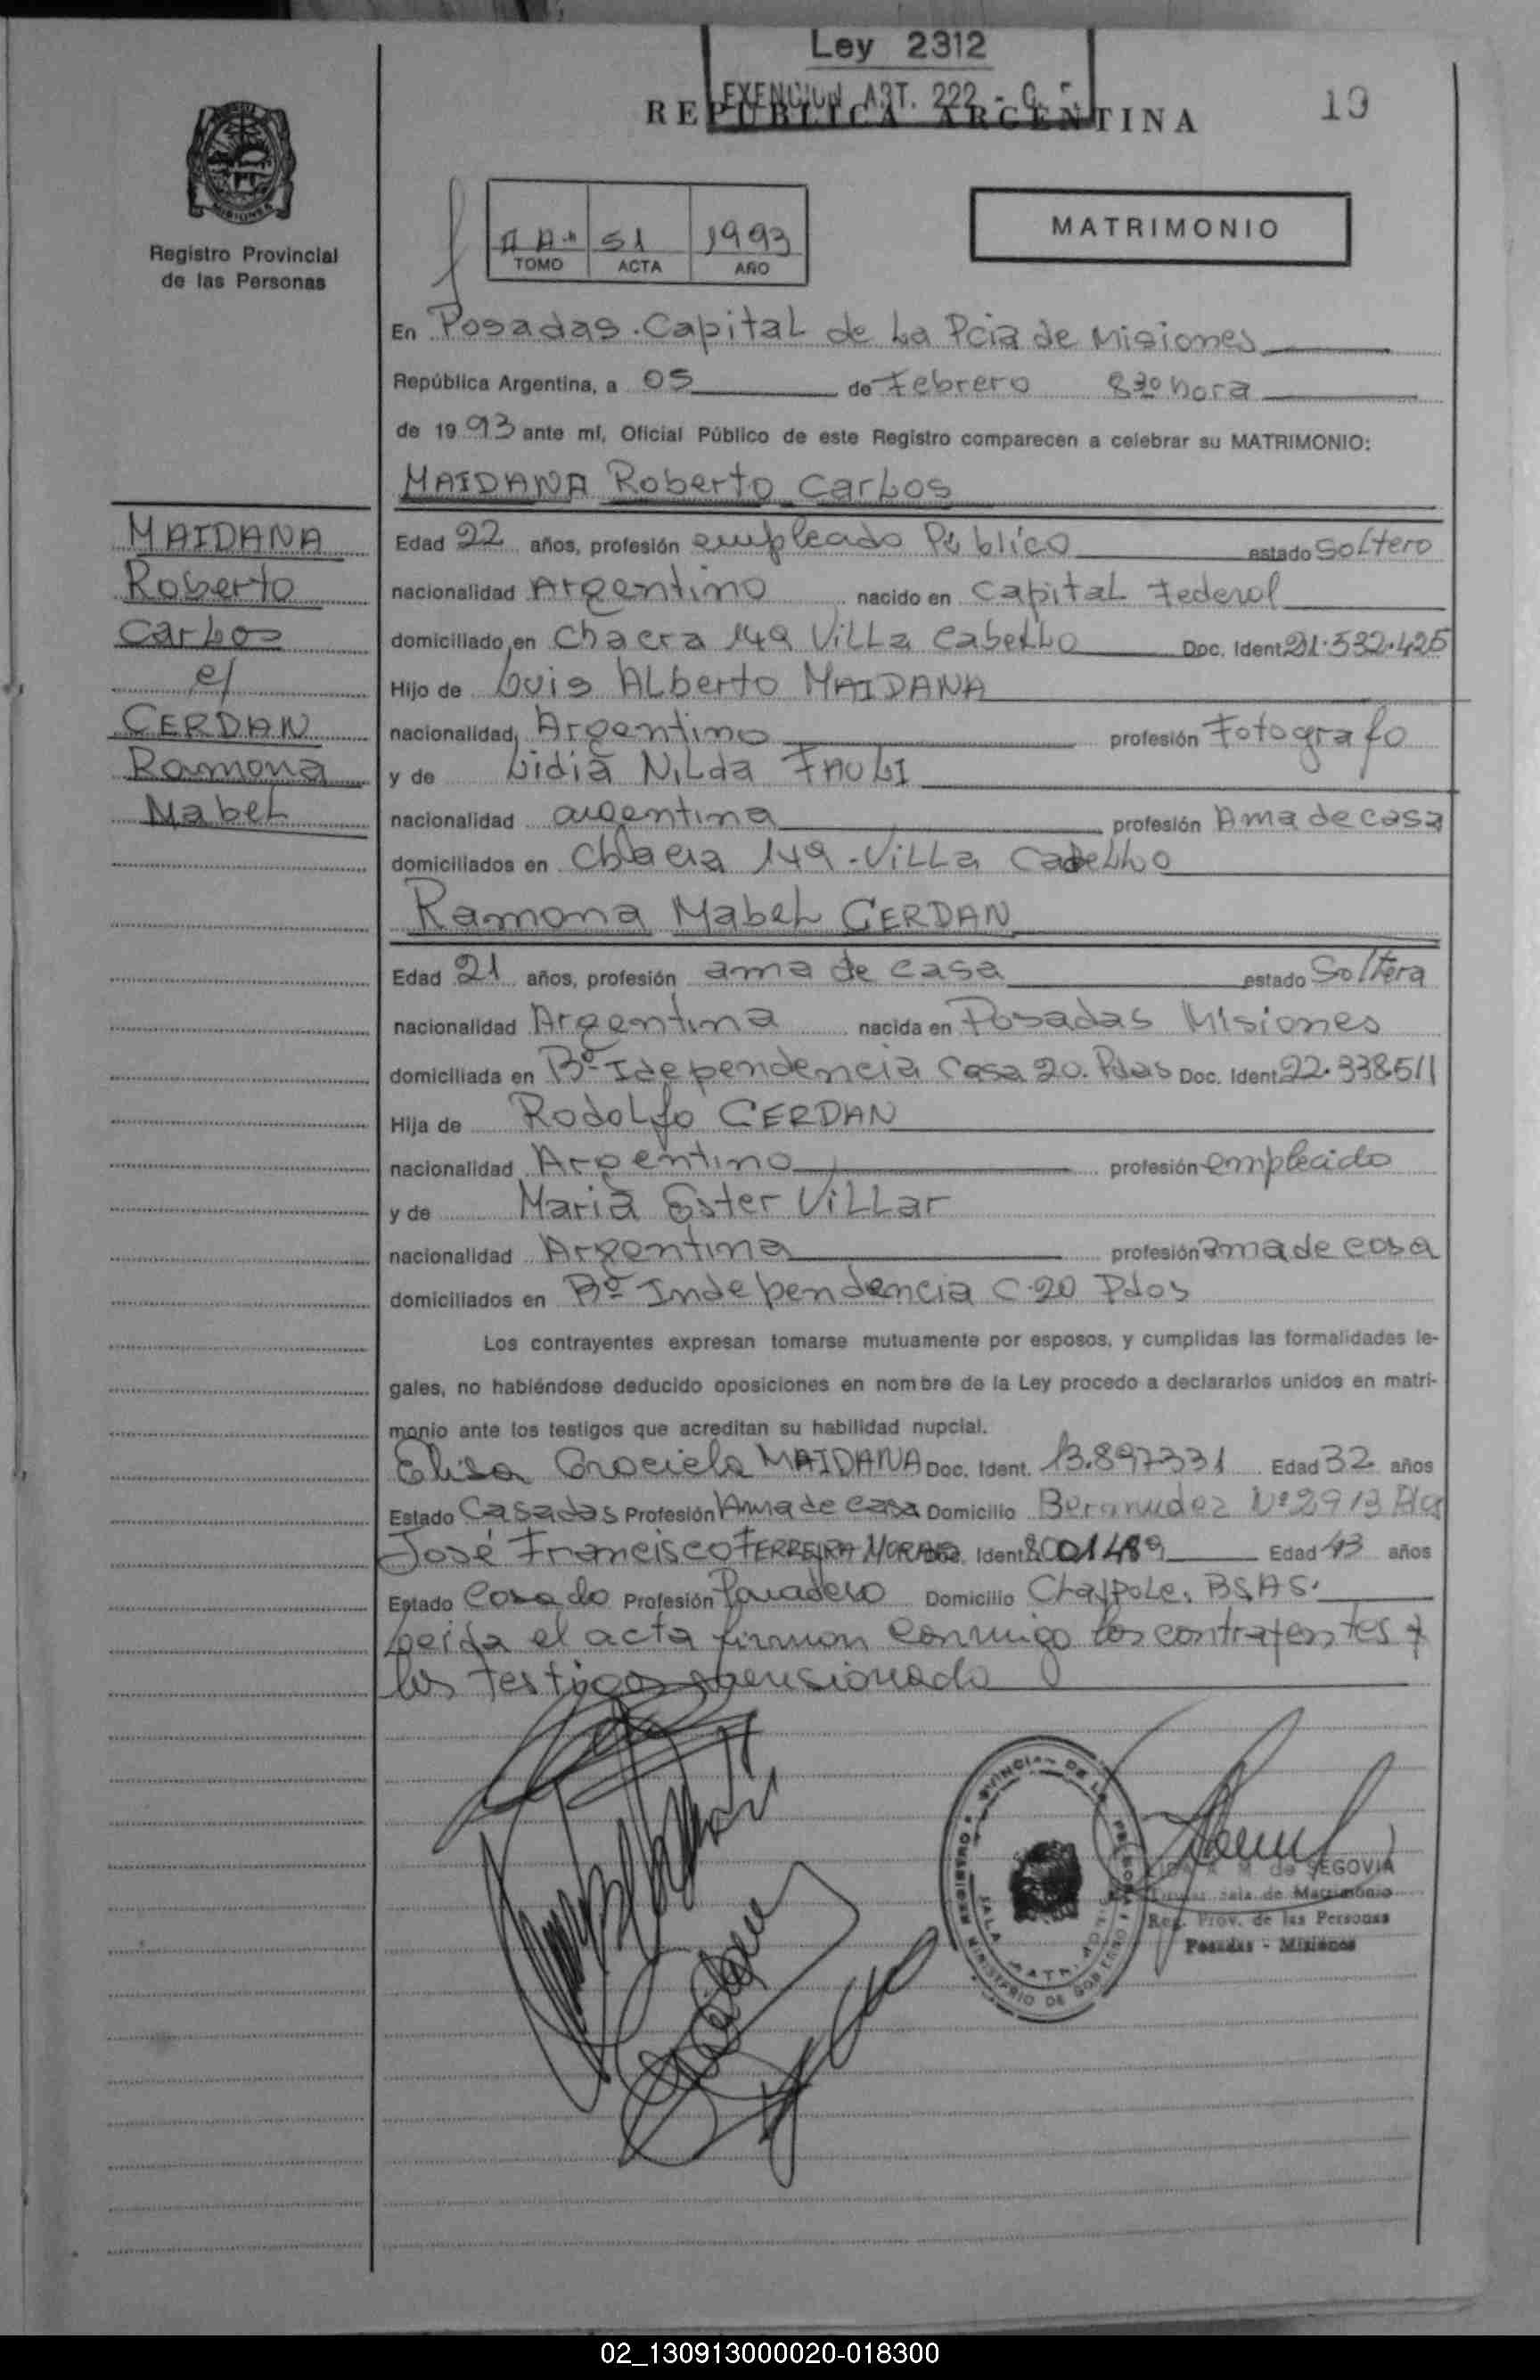 Ley 2312
EXENCION ART. 222 - C. F.
REPUBLICA ARGENTINA
19
MISIONES
Registro Provincial
de las Personas
51 1993
TOMO ACTA AÑO
MATRIMONIO
En Posadas. Capital de La Pcia de Misiones
República Argentina, a 05 de Febrero 830 hora
de 1993 ante mí, Oficial Público de este Registro comparecen a celebrar su MATRIMONIO:
MAIDANA Roberto Carlos
MAIDANA
Roberto
Carlos
c/
CERDAN
Ramona
Mabel
Edad 22 años, profesión empleado Público estado Soltero
nacionalidad Argentino nacido en Capital Federal
domiciliado en Chacra 149 Villa Cabello Doc. Ident. 21.532.425
Hijo de Luis Alberto MAIDANA
nacionalidad Argentino profesión Fotografo
y de Lidia Nilda FAULI
nacionalidad argentina profesión Ama de casa
domiciliados en Chacra 149 - Villa Cabello
Ramona Mabel CERDAN
Edad 21 años, profesión ama de casa estado Soltera
nacionalidad Argentina nacida en Posadas Misiones
domiciliada en Bº Idependencia Casa 20. Pdas Doc. Ident. 22.338511
Hija de Rodolfo CERDAN
nacionalidad Argentino profesión empleado
y de Maria Ester Villar
nacionalidad Argentina profesión ama de casa
domiciliados en Bº Independencia C.20 Pdas
Los contrayentes expresan tomarse mutuamente por esposos, y cumplidas las formalidades le-
gales, no habiéndose deducido oposiciones en nombre de la Ley procedo a declararlos unidos en matri-
monio ante los testigos que acreditan su habilidad nupcial.
Elisa Graciela MAIDANA Doc. Ident. 13.897331 Edad 32 años
Estado Casadas Profesión Ama de casa Domicilio Bermudez Nº 2913
José Francisco FERREIRA MORAIS Doc. Ident. 8001489 Edad 43 años
Estado Casado Profesión Panadero Domicilio BS.AS.
Leida el acta firman conmigo los contrayentes y
los testigos mensionado
SEGOVIA
Sala de Matrimonio
Reg. Prov. de las Personas
Posadas - Misiones
REGISTRO PROVINCIAL DE LAS PERSONAS
MINISTERIO DE GOBIERNO
02_130913000020-018300